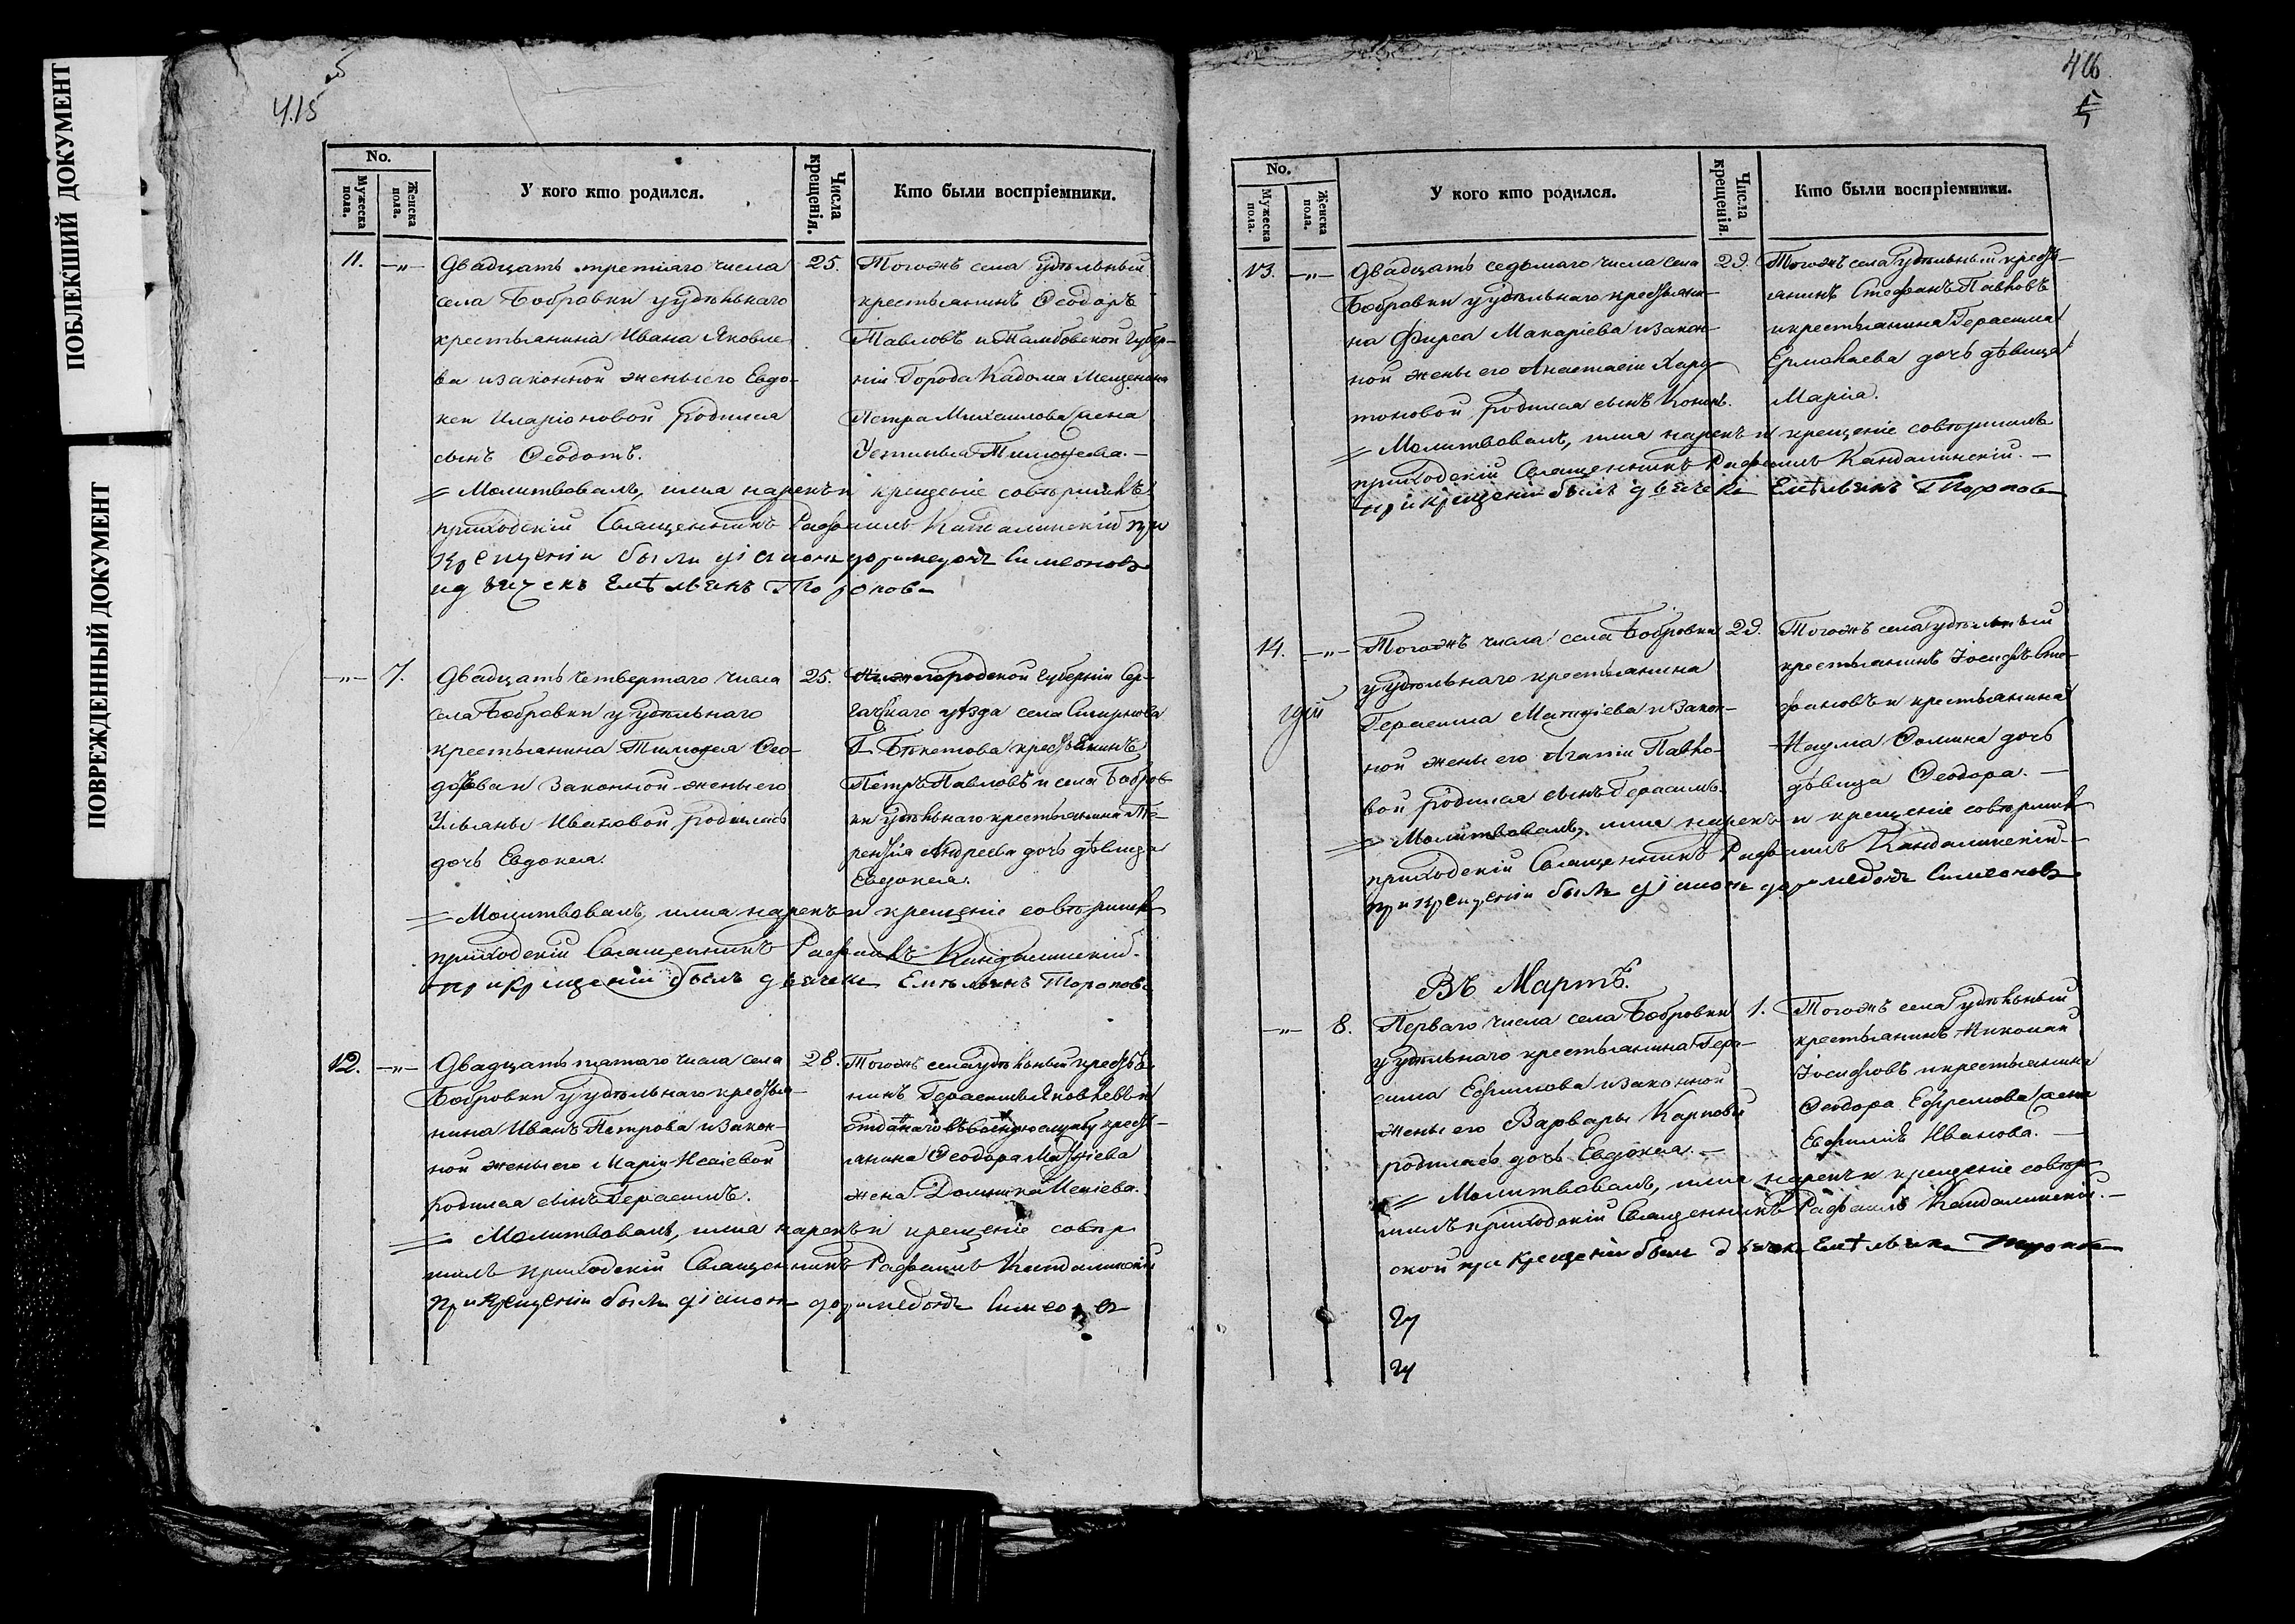 ПОБЛЕКШИЙ ДОКУМЕНТ
ПОВРЕЖДЕННЫЙ ДОКУМЕНТ
415
No.
Мужеска пола.
Женска пола.
У кого кто родился.
Числа крещенія.
Кто были воспріемники.
11. —„— Двадцать третіяго числа
села Бобровки у удѣльнаго
крестьянина Ивана Яковле-
ва и законной жены его Евдо-
кеи Иларіоновой родился
сынъ Ѳеодотъ.
25. Тогожъ села удѣльный
крестьянинъ Ѳеодоръ
Павловъ и Тамбовской Губер-
ніи Города Кадома Мещенина
Петра Михаилова жена
Устинья Тимоѳеева.—
Молитвовалъ, имя нарекъ и крещеніе совершилъ
приходскій Священникъ Рафаилъ Кандалинскій при
крещеніи были діаконъ доримедонъ Симеоновъ
и дьячекъ Емѣльянъ Топоровъ
—„— 7. Двадцать четвертаго числа
села Бобровки у удѣльнаго
крестьянина Тимоѳея Ѳео-
дорова и законной жены его
Ульяны Ивановой родилась
дочь Евдокея.
25. Нижегородской Губерніи Сер-
гачскаго уѣзда села Смирнова
Г. Бекетова крестьянинъ
Петръ Павловъ и села Бобров-
ки удѣльнаго крестьянина Те-
рентія Андреева дочь дѣвица
Евдокея.
Молитвовалъ, имя нарекъ и крещеніе совершилъ
приходскій Священникъ Рафаилъ Кандалинскій.
при крещеніи былъ дьячекъ Емѣльянъ Топоровъ
12. —„— Двадцать пятаго числа села
Бобровки у удѣльнаго крестья-
нина Иванъ Петрова и закон-
ной жены его Маріи Исаіевой
родился сынъ Герасимъ.
28. Тогожъ села удѣльный крестья-
нинъ Герасимъ Яковлевъ и
отданаго въ военную службу кресть-
янина Ѳеодора Матѳіева
жена Домника
Молитвовалъ, имя нарекъ и крещеніе совер
шилъ приходскій Священникъ Рафаилъ Кандалинскій
при крещеніи былъ діаконъ доримедонъ Симеоновъ
416
5
No.
Мужеска пола.
Женска пола.
У кого кто родился.
Числа крещенія.
Кто были воспріемники.
13. —„— Двадцать седьмаго числа села
Бобровки у удѣльнаго крестьяни-
на Фирса Макаріева и закон-
ной жены его Анастасіи Хари-
тоновой родился сынъ Кононъ.
29. Тогожъ села удѣльный кресть-
янинъ Стефанъ Павловъ
и крестьянина Герасима
Ермолаева дочь дѣвица
Марія.
Молитвовалъ, имя нарекъ и крещеніе совершилъ
приходскій Священникъ Рафаилъ Кандалинскій.—
при крещеніи былъ дьячекъ Емѣльянъ Топоровъ
14. —„— Тогожъ числа села Бобровки
у удѣльнаго крестьянина
Герасима Матѳіева и закон-
ной жены его Агапіи Павло-
вой родился сынъ Герасимъ.
29. Тогожъ села удѣльный
крестьянинъ Іосифъ Сте-
фановъ и крестьянина
Наума Ѳомина дочь
дѣвица Ѳеодора.—
Молитвовалъ, имя нарекъ и крещеніе совершилъ
приходскій Священникъ Рафаилъ Кандалинскій.—
при крещеніи былъ діаконъ доримедонъ Симеоновъ
Въ Мартѣ.
—„— 8. Перваго числа села Бобровки
у удѣльнаго крестьянина Гера-
сима Ефимова и законной
жены его Варвары Карповы
родилась дочь Евдокея.—
1. Тогожъ села удѣльный
крестьянинъ Николаи
Іосифовъ и крестьянина
Ѳеодора Ефремова жена
Евфимія Иванова.—
Молитвовалъ, имя нарекъ и крещеніе совер-
шилъ приходскій Священникъ Рафаилъ Кандалинскій.—
при крещеніи былъ дьячекъ Емѣльянъ Топоровъ